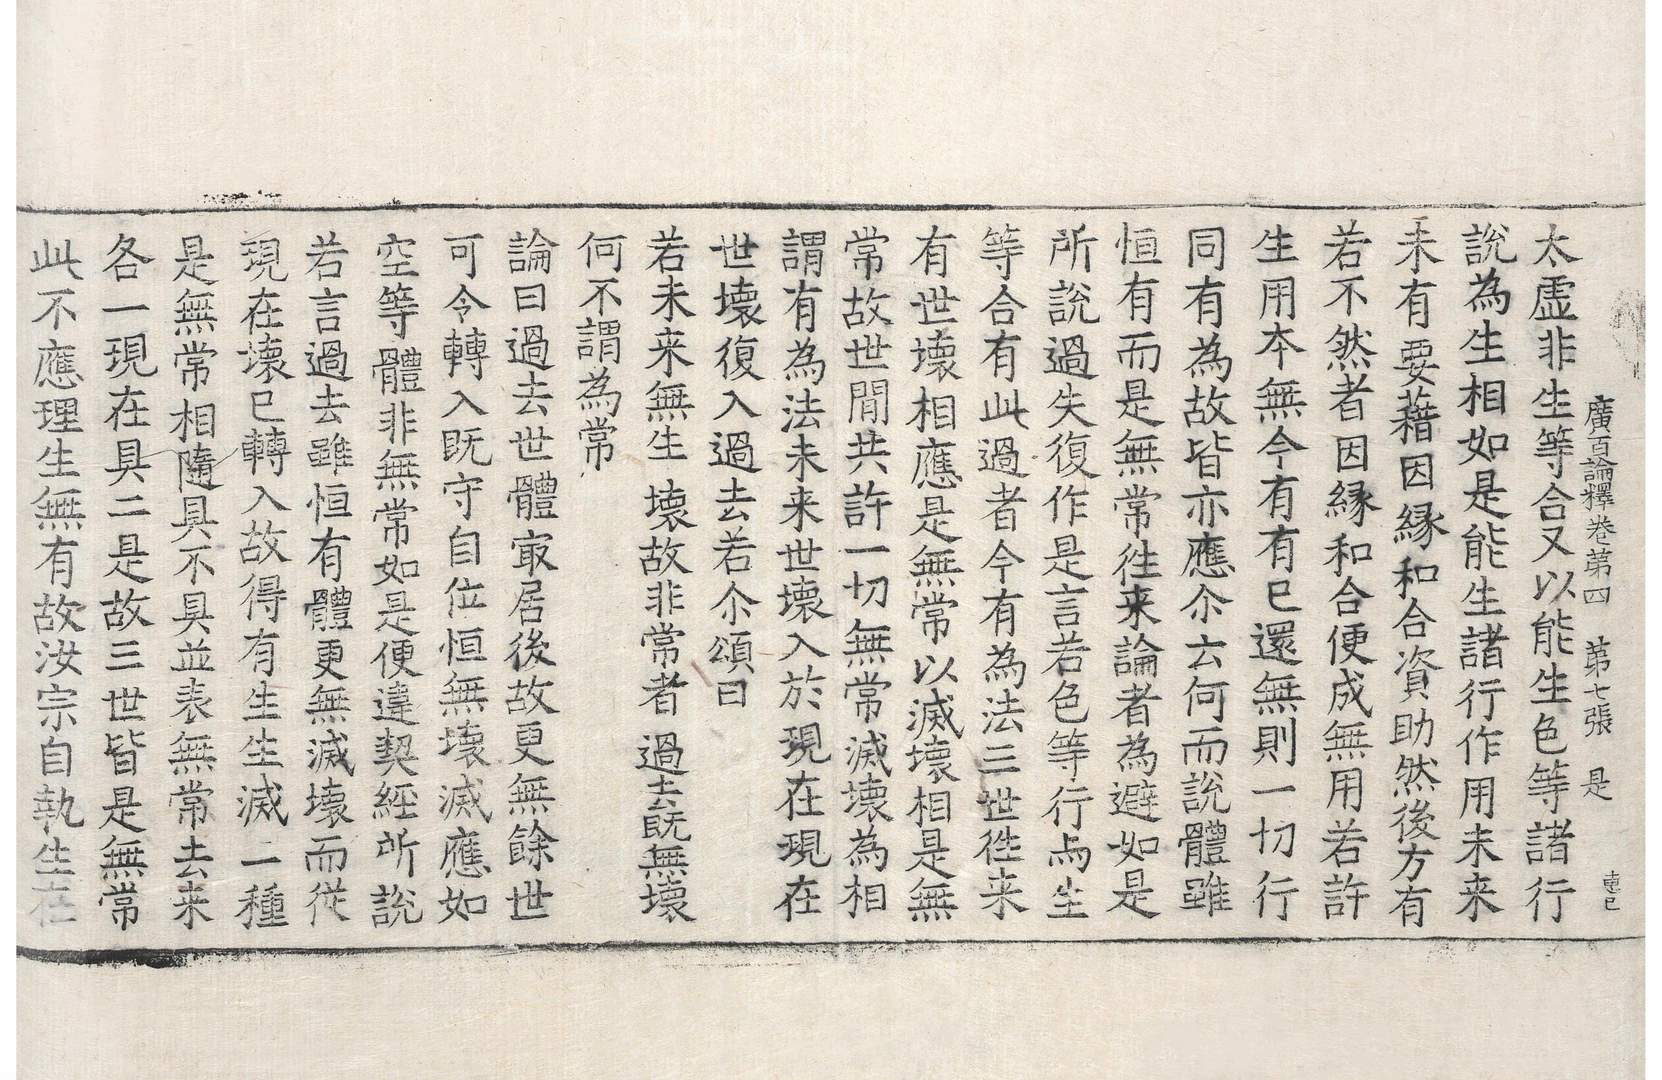 廣百論釋卷第四　第七張　是
惠已
太虛非生等合又以能生色等諸行
說為生相如是能生諸行作用未来
未有要藉因縁和合資助然後方有
若不然者因縁和合便成無用若許
生用本無今有有已還無則一切行
同有為故皆亦應尒云何而說體雖
恒有而是無常徃来論者為避如是
所說過失復作是言若色等行与生
等合有此過者今有為法三世徃来
有世壞相應是無常以滅壞相是無
常故世間共許一切無常滅壞為相
謂有為法未来世壞入於現在現在
世壞復入過去若尒頌曰
若未来無生　壞故非常者　過去既無壞
何不謂為常
論曰過去世體㝡居後故更無餘世
可令轉入既守自位恒無壞滅應如
空等體非無常如是便違契經所說
若言過去雖恒有體更無滅壞而從
現在壞已轉入故得有生生滅二種
是無常相隨具不具並表無常去来
各一現在具二是故三世皆是無常
此不應理生無有故汝宗自執生在